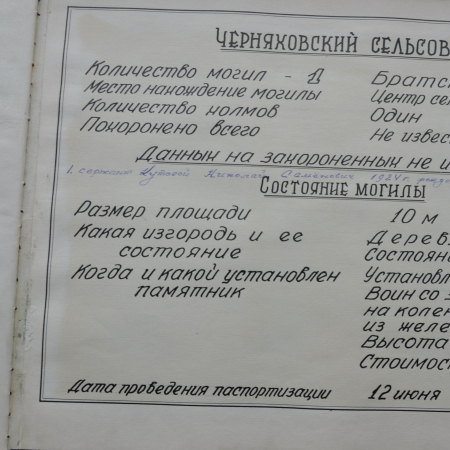 Черняховский сельсов
Количество могил - 1 Братск
Место нахождение могилы Центр се
Количество холмов Один
Похоронено всего Не извес
Данных на захороненных не и
1. сержант Николай Семенович 1924 г. рожд
Состояние могилы
Размер площади 10 м
Какая изгородь и ее Дерев
состояние Состояни
Когда и какой установлен Установл
памятник Воин со з
на колен
из желе
Высота
Стоимос
Дата проведения паспортизации 12 июня